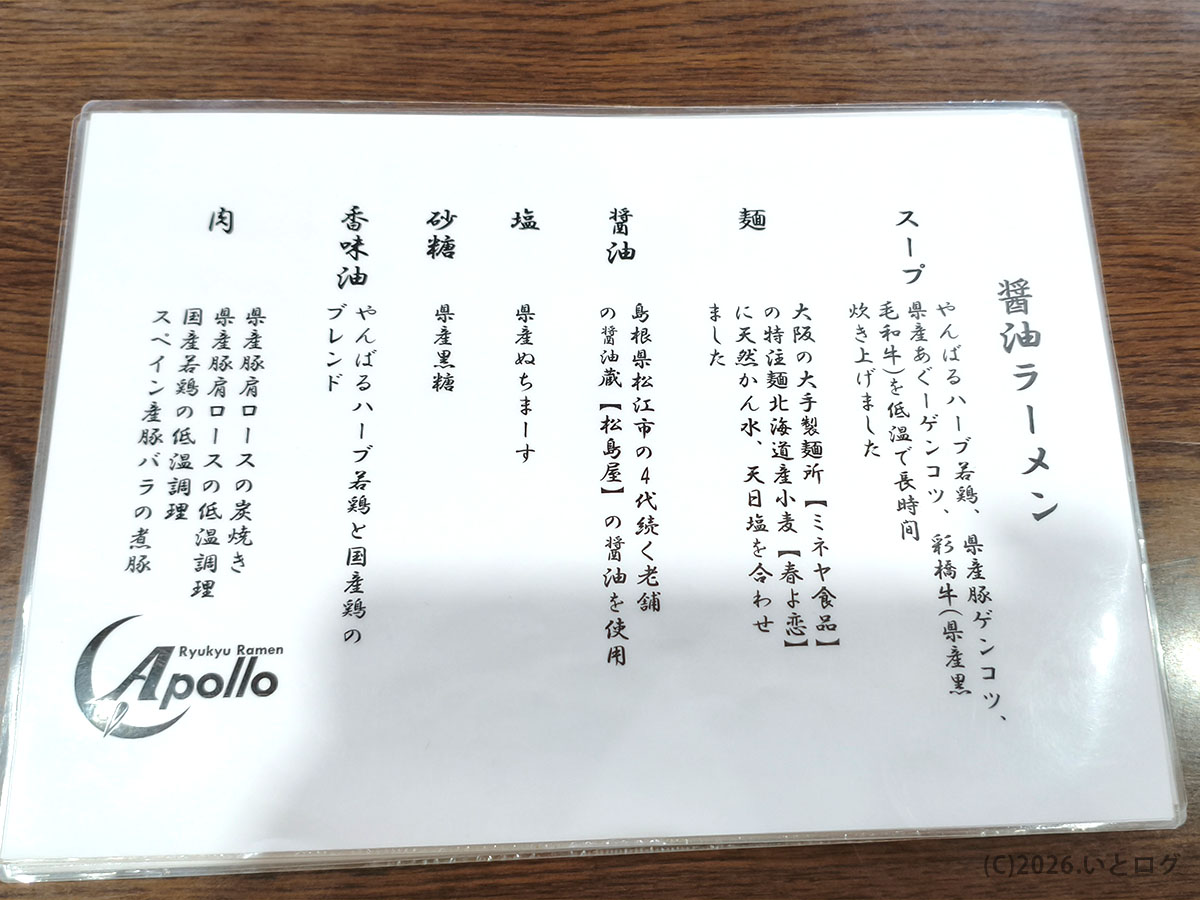 醤油ラーメン
スープ
やんばるハーブ若鶏、県産豚ゲンコツ、
県産あぐーゲンコツ、彩橋牛(県産黒
毛和牛)を低温で長時間
炊き上げました
麺
大阪の大手製麺所【ミネヤ食品】
の特注麺北海道産小麦【春よ恋】
に天然かん水、天日塩を合わせ
ました
醤油
島根県松江市の4代続く老舗
の醤油蔵【松島屋】の醤油を使用
塩
県産ぬちまーす
砂糖
県産黒糖
香味油
やんばるハーブ若鶏と国産鶏の
ブレンド
肉
県産豚肩ロースの炭焼き
県産豚肩ロースの低温調理
国産若鶏の低温調理
スペイン産豚バラの煮豚
Ryukyu Ramen
Apollo
(C)2026.いとログ